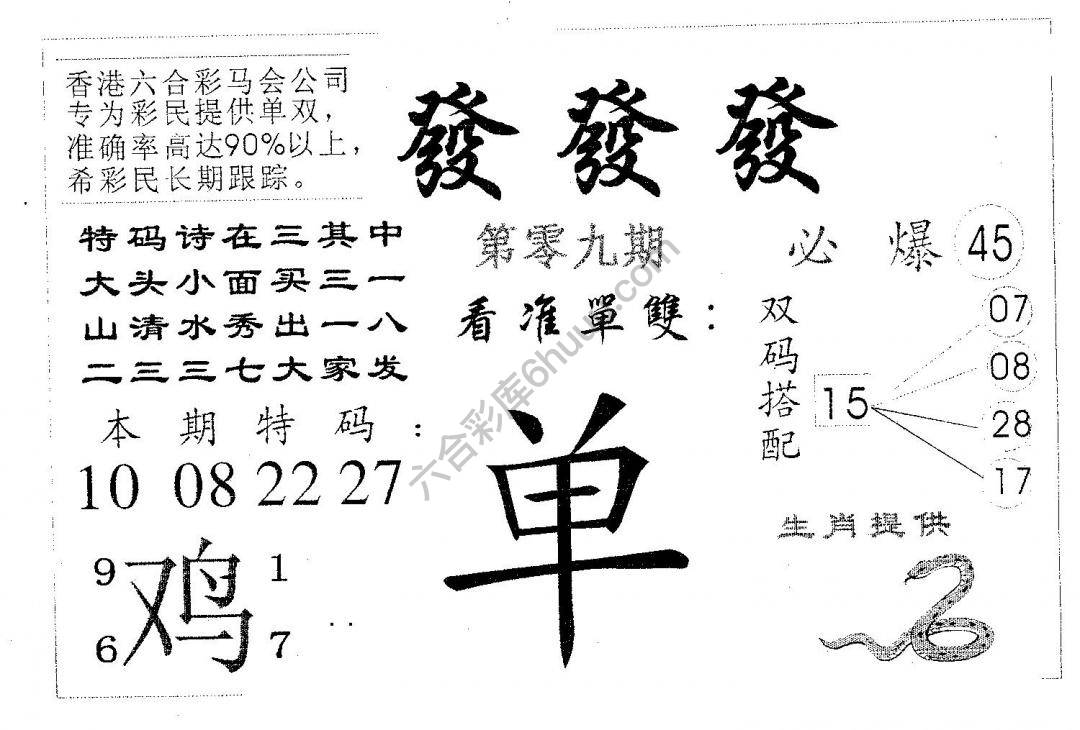 香港六合彩马会公司
专为彩民提供单双，
准确率高达90%以上，
希彩民长期跟踪。
發 發 發
特码诗在三其中
大头小面买三一
山清水秀出一八
二三三七大家发
第零九期
看准單雙：
必爆 45
双码搭配
15
07
08
28
17
本期特码：
10 08 22 27
单
9 1
鸡
6 7
生肖提供
六合彩库6huu.com